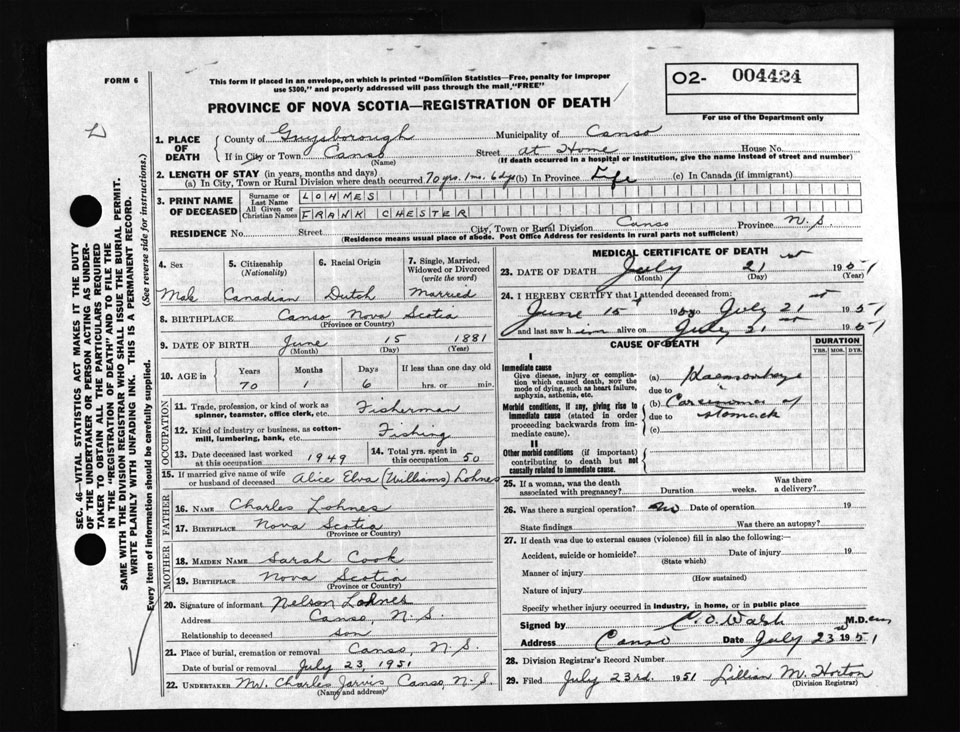 FORM 6
This form if placed in an envelope, on which is printed "Dominion Statistics—Free, penalty for improper
use $300," and properly addressed will pass through the mail "FREE"
PROVINCE OF NOVA SCOTIA—REGISTRATION OF DEATH
O2- 004424
For use of the Department only
1. PLACE OF DEATH
County of Guysborough Municipality of Canso
If in City or Town Canso Street at Home House No.
(Name) (If death occurred in a hospital or institution, give the name instead of street and number)
2. LENGTH OF STAY (in years, months and days)
(a) In City, Town or Rural Division where death occurred 70 yrs. 1 mo. 6 dys (b) In Province Life (c) In Canada (if immigrant)
3. PRINT NAME OF DECEASED
Surname or Last Name LOHNES
All Given or Christian Names FRANK CHESTER
RESIDENCE No. Street City, Town or Rural Division Canso Province N.S
(Residence means usual place of abode. Post Office Address for residents in rural parts not sufficient)
4. Sex 5. Citizenship (Nationality) 6. Racial Origin 7. Single, Married, Widowed or Divorced (write the word)
Male Canadian Dutch Married
8. BIRTHPLACE Canso Nova Scotia
(Province or Country)
9. DATE OF BIRTH June 15 1881
(Month) (Day) (Year)
10. AGE in Years Months Days If less than one day old
70 1 6 hrs. or min.
OCCUPATION
11. Trade, profession, or kind of work as spinner, teamster, office clerk, etc. Fisherman
12. Kind of industry or business, as cotton-mill, lumbering, bank, etc. Fishing
13. Date deceased last worked at this occupation 1949 14. Total yrs. spent in this occupation 50
15. If married give name of wife or husband of deceased Alice Elva (Williams) Lohnes
FATHER
16. NAME Charles Lohnes
17. BIRTHPLACE Nova Scotia
(Province or Country)
MOTHER
18. MAIDEN NAME Sarah Cook
19. BIRTHPLACE Nova Scotia
(Province or Country)
20. Signature of informant Nelson Lohnes
Address Canso, N.S.
Relationship to deceased son
21. Place of burial, cremation or removal Canso, N.S.
Date of burial or removal July 23, 1951
22. UNDERTAKER Mr. Charles Jarvis Canso, N.S.
(Name and address)
MEDICAL CERTIFICATE OF DEATH
23. DATE OF DEATH July 21st 1951
(Month) (Day) (Year)
24. I HEREBY CERTIFY that I attended deceased from:
June 15 to July 21st 1951
and last saw him alive on July 21st 1951
CAUSE OF DEATH DURATION
YRS. MOS. DYS.
I
Immediate cause
Give disease, injury or complication which caused death, NOT the mode of dying, such as heart failure, asphyxia, asthenia, etc.
(a) Haemorrhage
due to
Morbid conditions, if any, giving rise to immediate cause (stated in order proceeding backwards from immediate cause).
(b) Carcinoma of
due to stomach
(c)
II
Other morbid conditions (if important) contributing to death but not causally related to immediate cause.
25. If a woman, was the death associated with pregnancy? Duration weeks. Was there a delivery?
26. Was there a surgical operation? no Date of operation 19
State findings Was there an autopsy?
27. If death was due to external causes (violence) fill in also the following:—
Accident, suicide or homicide? Date of injury 19
(State which)
Manner of injury
(How sustained)
Nature of injury
Specify whether injury occurred in industry, in home, or in public place
Signed by C. O. Walsh M.D.
Address Canso Date July 23 1951
28. Division Registrar's Record Number
29. Filed July 23rd. 1951 Lillian M. Horton
(Division Registrar)
SEC. 46—VITAL STATISTICS ACT MAKES IT THE DUTY
OF THE UNDERTAKER OR PERSON ACTING AS UNDER-
TAKER TO OBTAIN ALL THE PARTICULARS REQUIRED
IN THE "REGISTRATION OF DEATH" AND TO FILE THE
SAME WITH THE DIVISION REGISTRAR WHO SHALL ISSUE THE BURIAL PERMIT.
WRITE PLAINLY WITH UNFADING INK. THIS IS A PERMANENT RECORD.
Every item of information should be carefully supplied. (See reverse side for instructions.)